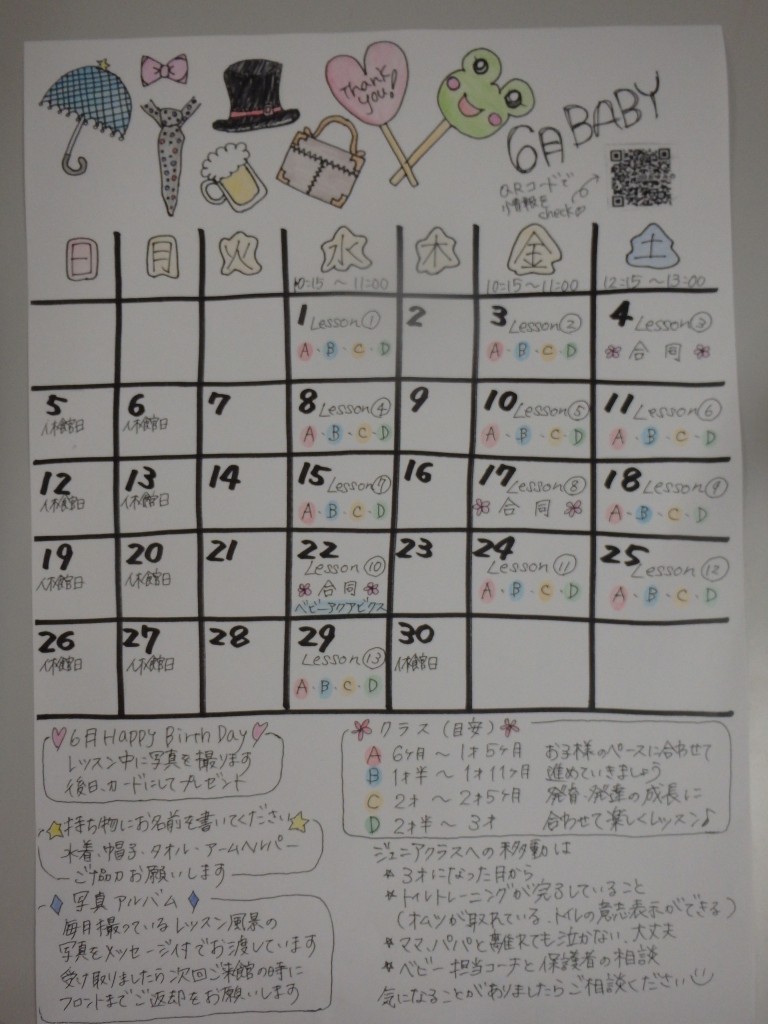 Thank
you!
6月BABY
QRコードで
情報を
check
日 月 火 水 木 金 土
10:15 ～ 11:00 10:15～11:00 12:15 ～ 13:00
1 Lesson① 2 3 Lesson② 4 Lesson③
A・B・C・D A・B・C・D 合同
5 6 7 8 Lesson④ 9 10 Lesson⑤ 11 Lesson⑥
休館日 休館日 A・B・C・D A・B・C・D A・B・C・D
12 13 14 15 Lesson⑦ 16 17 Lesson⑧ 18 Lesson⑨
休館日 休館日 A・B・C・D 合同 A・B・C・D
19 20 21 22 23 24 25
休館日 休館日 Lesson⑩ Lesson⑪ Lesson⑫
合同 A・B・C・D A・B・C・D
ベビーアクアビクス
26 27 28 29 30
休館日 休館日 Lesson⑬ 休館日
A・B・C・D
6月Happy Birth Day
レッスン中に写真を撮ります
後日、カードにしてプレゼント
持ち物にお名前を書いてください
水着、帽子・タオル・アームヘルパー
ご協力お願いします
写真アルバム
毎月撮っているレッスン風景の
写真をメッセージ付でお渡しています
受け取りましたら次回ご来館の時に
フロントまでご返却をお願いします
クラス(目安)
A 6ヶ月 ～ 1才5ヶ月 お子様のペースに合わせて
B 1才半 ～ 1才11ヶ月 進めていきましょう
C 2才 ～ 2才5ヶ月 発育・発達の成長に
D 2才半 ～ 3才 合わせて楽しくレッスン♪
ジュニアクラスへの移動は
* 3才になった月から
* トイレトレーニングが完了していること
(オムツが取れている、トイレの意志表示ができる)
* ママ、パパと離れても泣かない、大丈夫
* ベビー担当コーチと保護者の相談
気になることがありましたらご相談ください